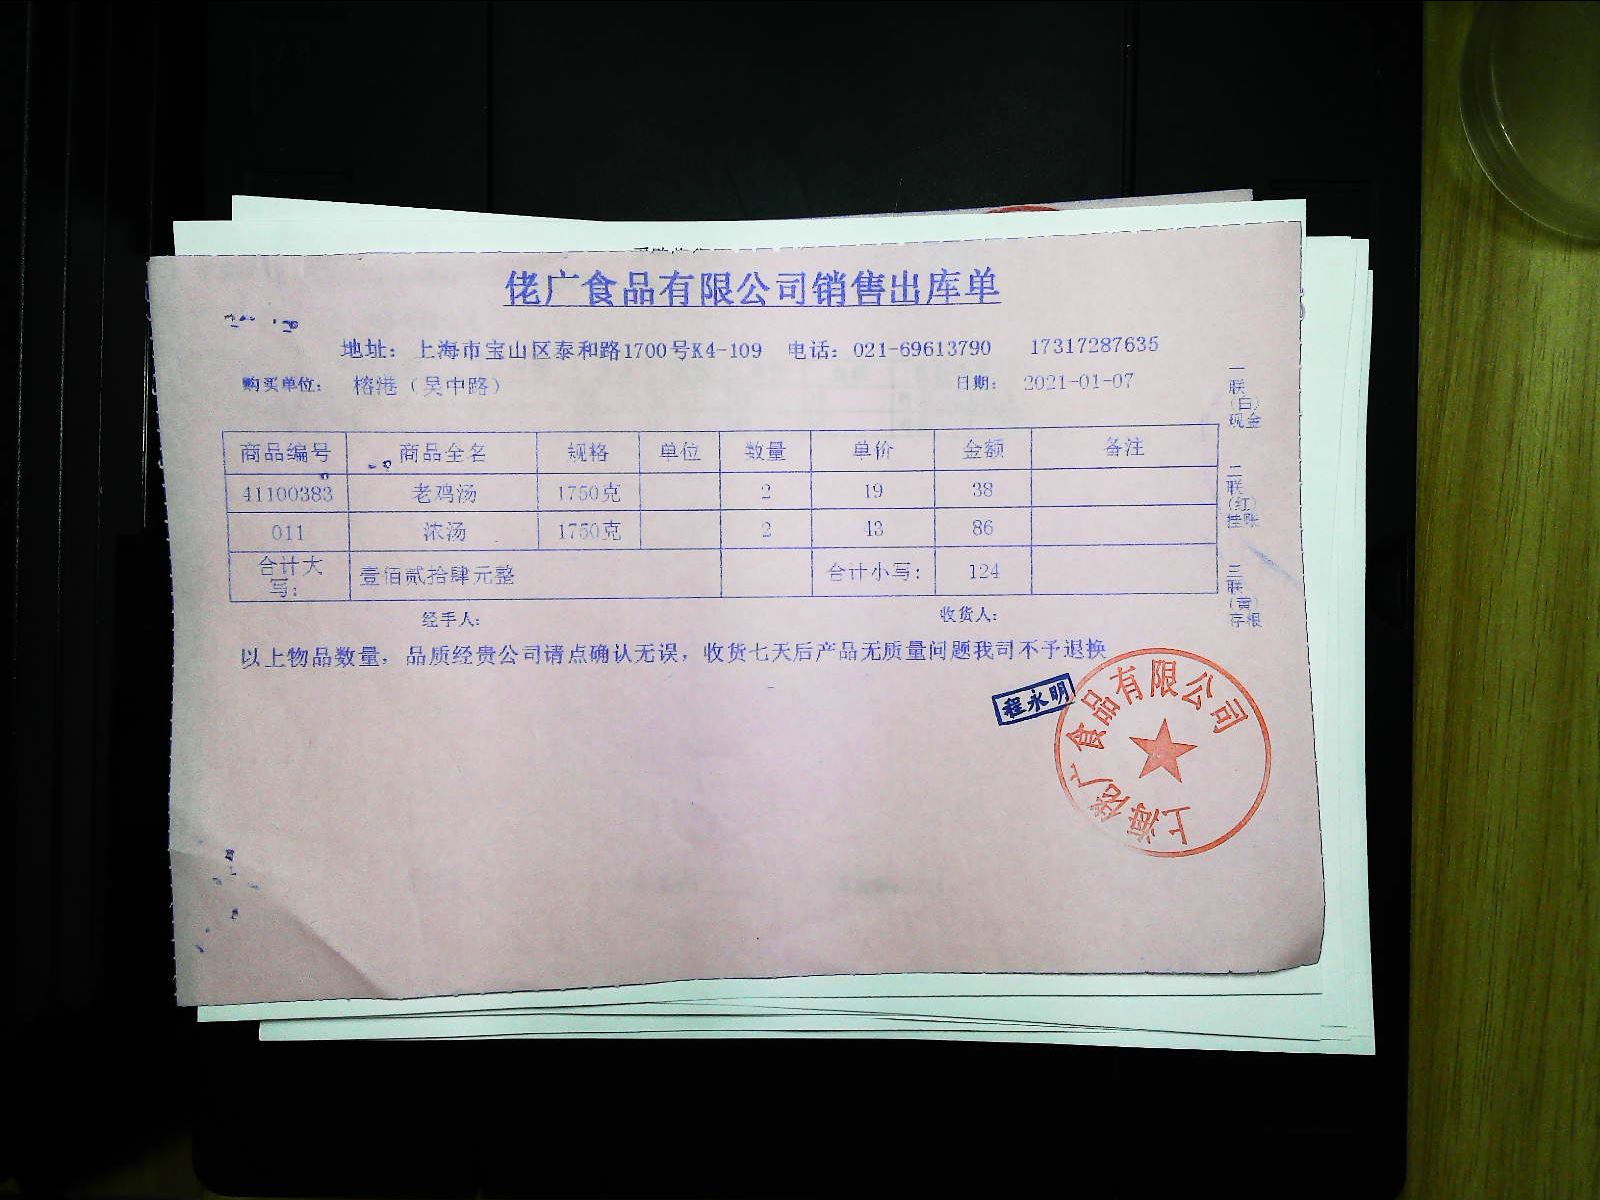 佬广食品有限公司销售出库单
地址：上海市宝山区泰和路1700号K4-109 电话：021-69613790 17317287635
购买单位：榕港（吴中路） 日期：2021-01-07
商品编号 商品全名 规格 单位 数量 单价 金额 备注
41100383 老鸡汤 1750克 2 19 38
011 浓汤 1750克 2 43 86
合计大写： 壹佰贰拾肆元整 合计小写： 124
经手人： 收货人：
以上物品数量，品质经贵公司请点确认无误，收货七天后产品无质量问题我司不予退换
一联（白）现金
二联（红）挂账
三联（黄）存根
程永明
上海佬广食品有限公司